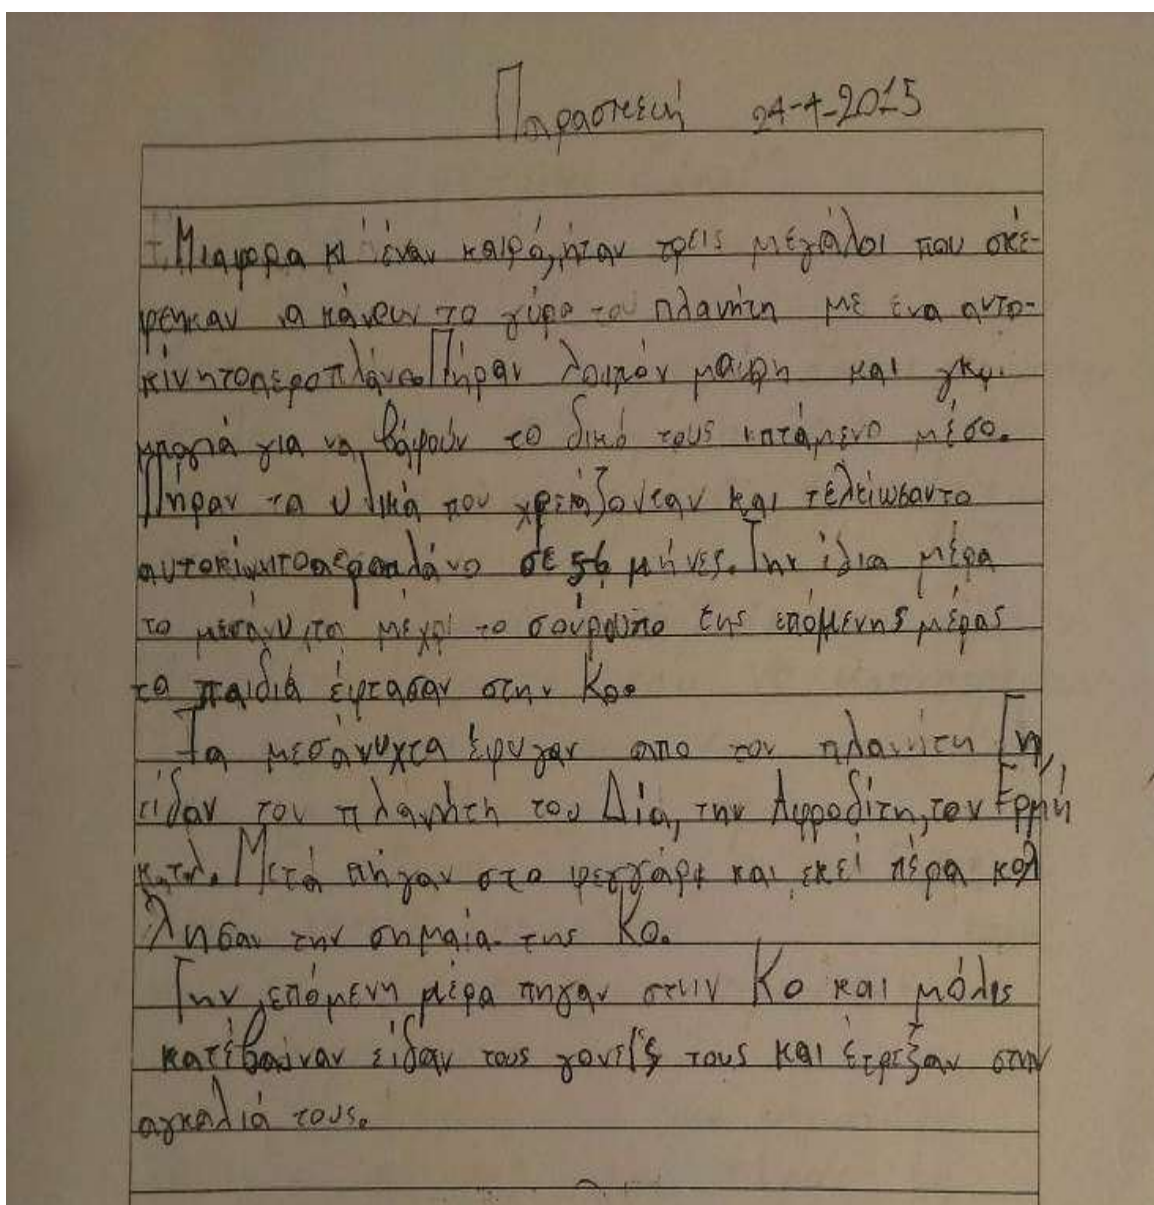 Παρασκευή 24-4-2015
Μιαφορα κι έναν καιρό, ήταν τρεις μεγάλοι που σκέ-
φτηκαν να κάνουν το γύρο του πλανήτη με ένα αυτο-
κίνητοαεροπλάνο. Πήραν λοιπόν μαύρη και γκρι
μπογιά για να βάψουν το δικό τους ιπτάμενο μέσο.
Πήραν τα υλικά που χρειάζονταν και τέλειωσαντο
αυτοκίνητοαεροπλάνο σε 56 μήνες. Την ίδια μέρα
το μεσάνυχτα μέχρι το σούρουπο της επόμενης μέρας
τα παιδιά έφτασαν στην Κω.
Τα μεσάνυχτα έφυγαν απο τον πλανήτη Γη,
είδαν τον πλανήτη του Δία, την Αφροδίτη, τον Ερμή
κ.τ.λ. Μετά πήγαν στο φεγγάρι και εκεί πέρα κολ
λησαν την σημαία της Κο.
Την επόμενη μέρα πηγαν στην Κο και μόλις
κατέβαιναν είδαν τους γονείς τους και έτρεξαν στην
αγκαλιά τους.